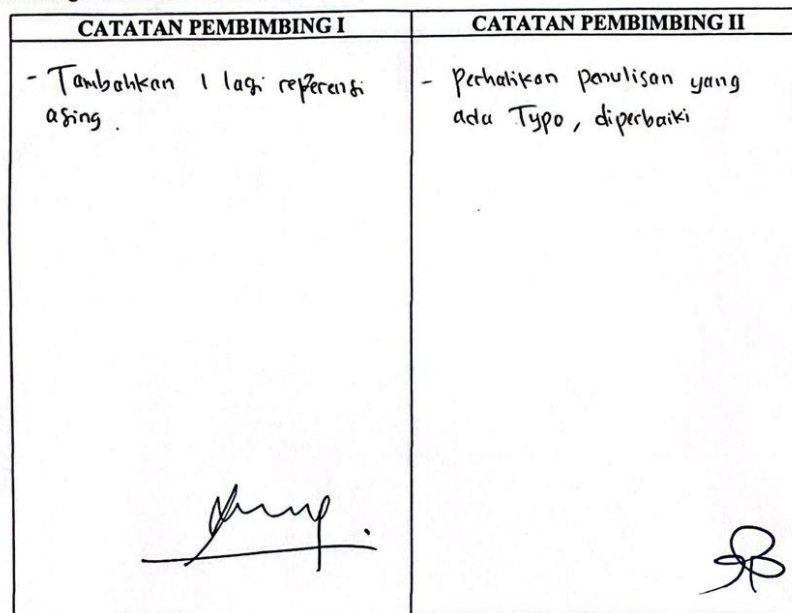 CATATAN PEMBIMBING I
CATATAN PEMBIMBING II
- Tambahkan 1 lagi referensi
asing.
- Perhatikan penulisan yang
ada Typo, diperbaiki